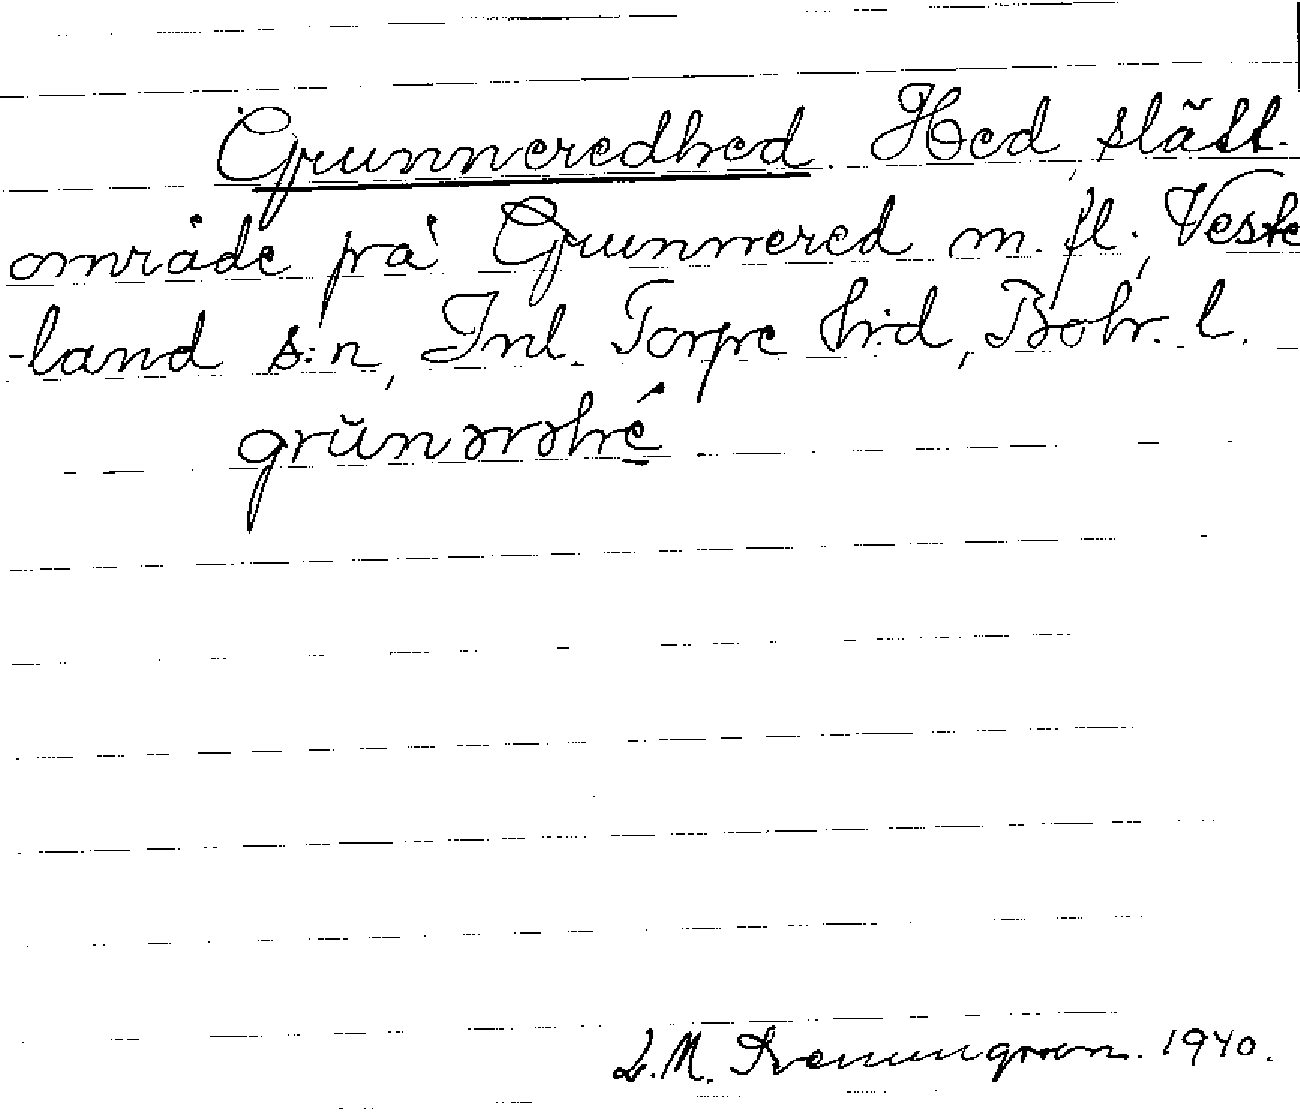 Grunneredhed. Hed, slätt-
område på Grunnered m. fl., Veste
-land s:n, Inl. Torpe h:d, Boh. l.
grŭnərəhé
1940.